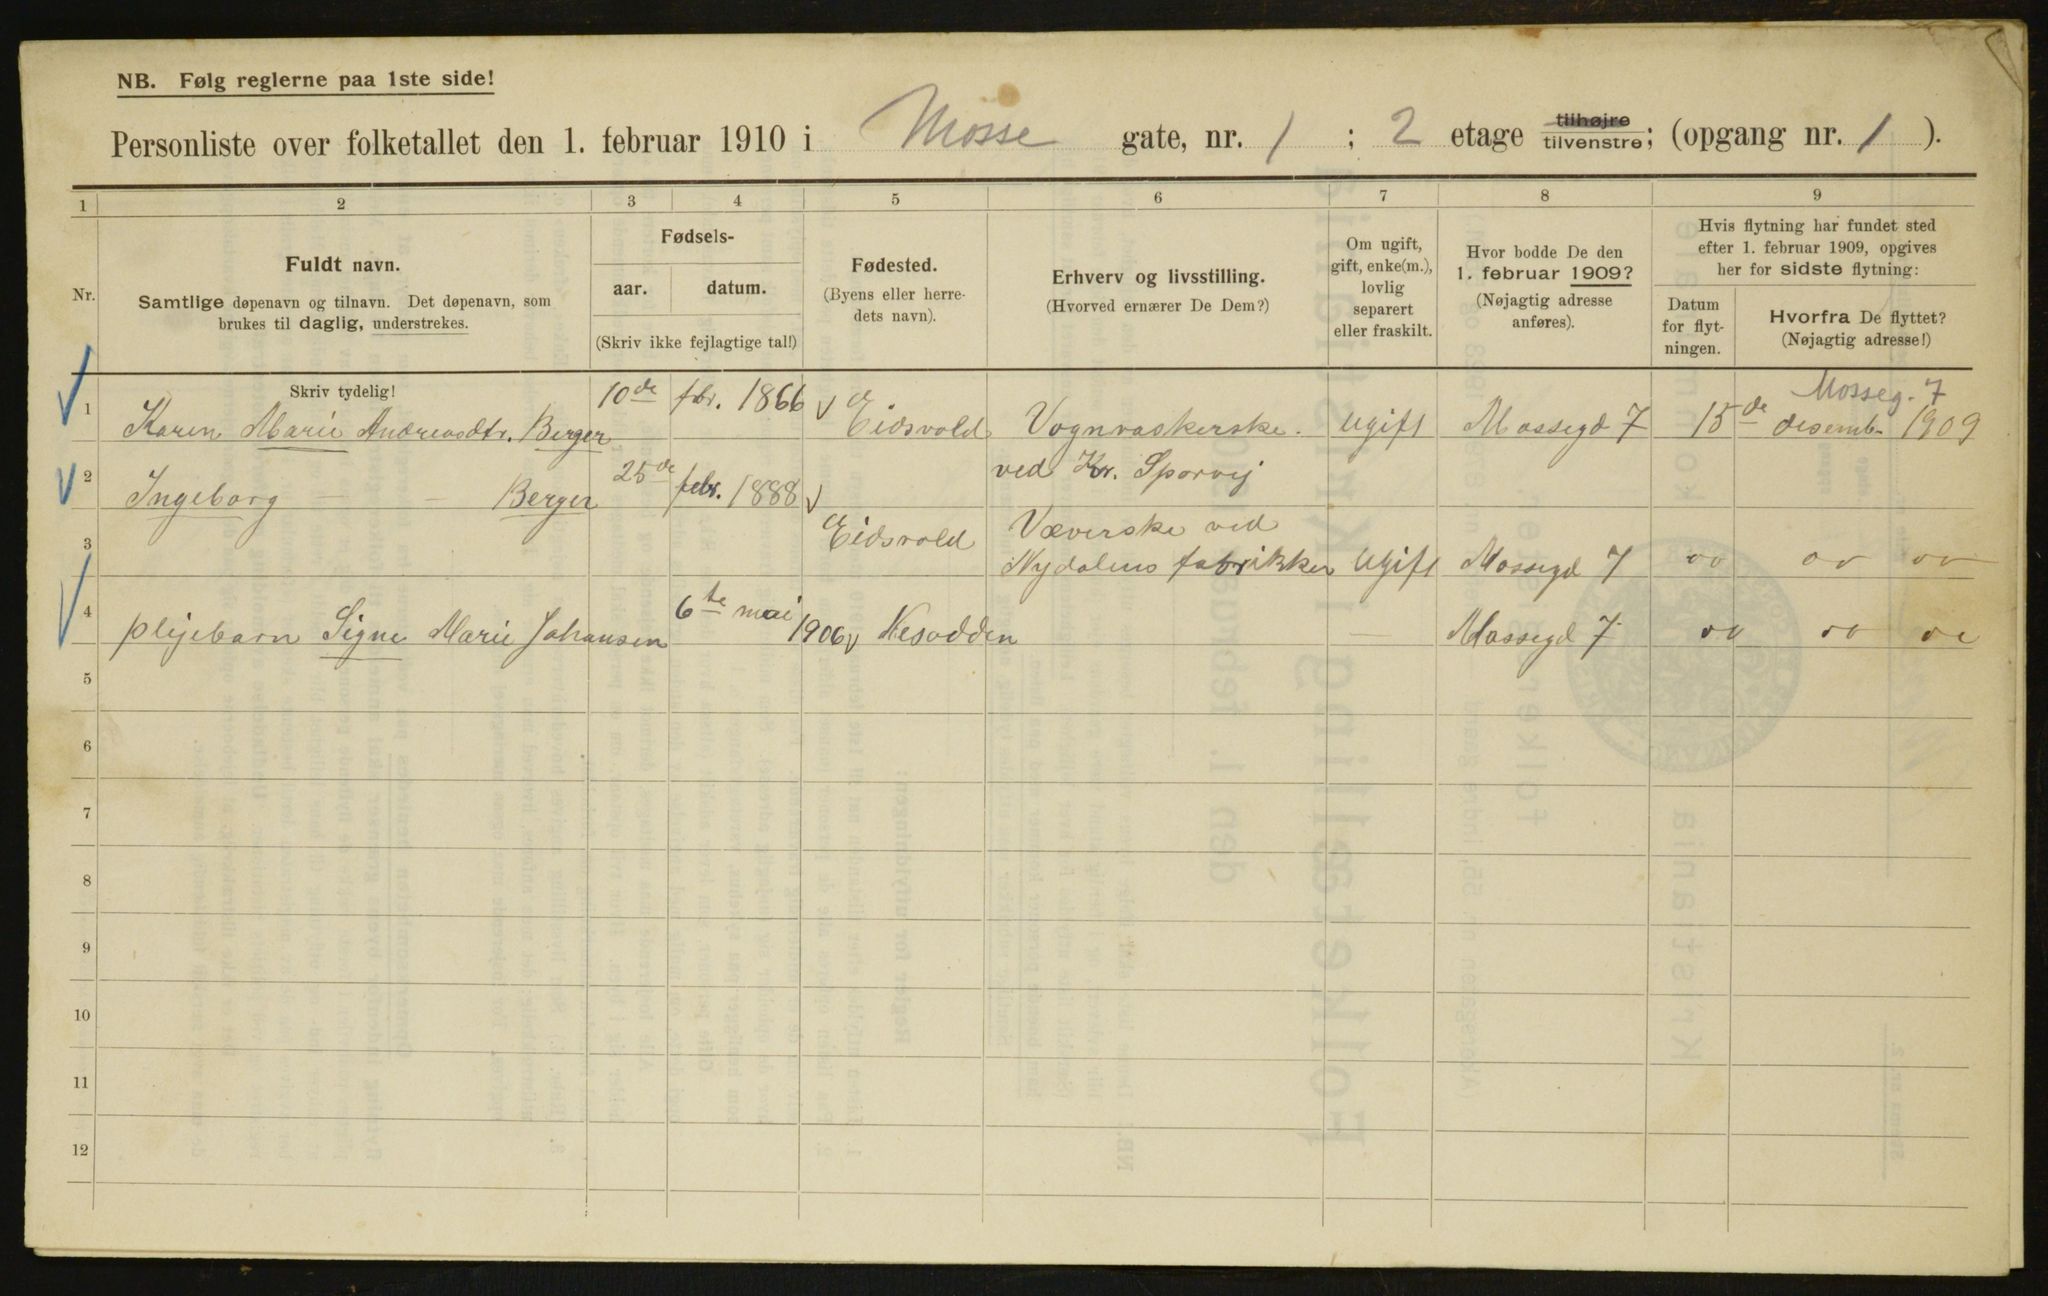 NB. Følg reglerne paa 1ste side!
Personliste over folketallet den 1. februar 1910 i Mosse gate, nr. 1; 2 etage tilhøjre tilvenstre; (opgang nr. 1).
1 2 3 4 5 6 7 8 9
Nr.
Fuldt navn.
Samtlige døpenavn og tilnavn. Det døpenavn, som
brukes til daglig, understrekes.
Fødsels-
aar. datum.
(Skriv ikke fejlagtige tal!)
Fødested.
(Byens eller herre-
dets navn).
Erhverv og livsstilling.
(Hvorved ernærer De Dem?)
Om ugift,
gift, enke(m.),
lovlig
separert
eller fraskilt.
Hvor bodde De den
1. februar 1909?
(Nøjagtig adresse
anføres).
Hvis flytning har fundet sted
efter 1. februar 1909, opgives
her for sidste flytning:
Datum
for flyt-
ningen.
Hvorfra De flyttet?
(Nøjagtig adresse!)
Skriv tydelig!
1 Karen Marie Andreasdtr. Berger 10de fbr. 1866 Eidsvold Vognvaskerske. ugift Mossegd 7 15de desemb. 1909 Mosseg. 7
ved Kr. Sporvej
2 Ingeborg — — Berger 25de febr. 1888
3 Eidsvold Væverske ved
Nydalens fabrikker ugift Mossegd 7 " " "
4 plejebarn Signe Marie Johansen 6te mai 1906 Nesodden — Mossegd 7 " " "
5
6
7
8
9
10
11
12